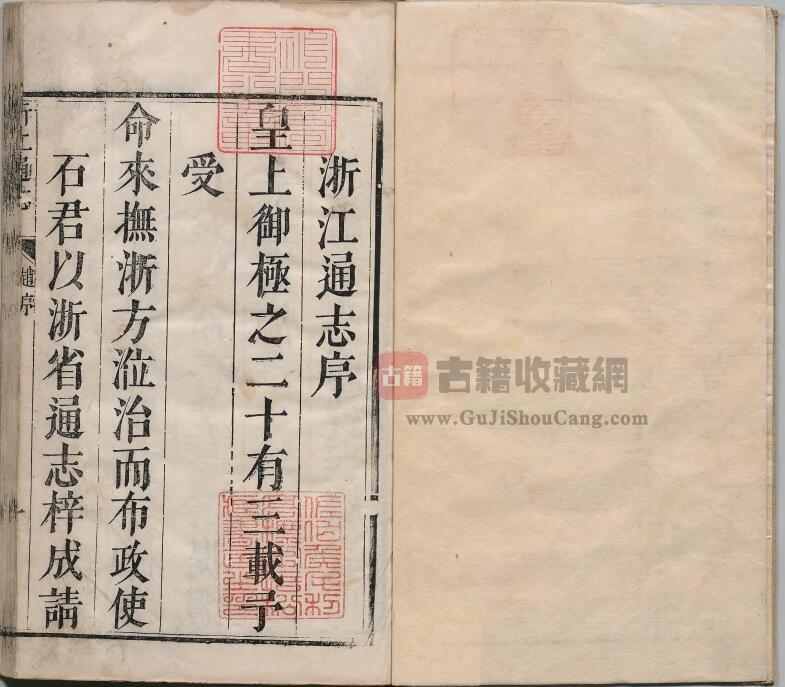 浙江通志序
皇上御極之二十有三載予
受
命來撫浙方涖治而布政使
石君以浙省通志梓成請
浙江通志
趙序
一
古籍
古籍收藏網
www.GuJiShouCang.com